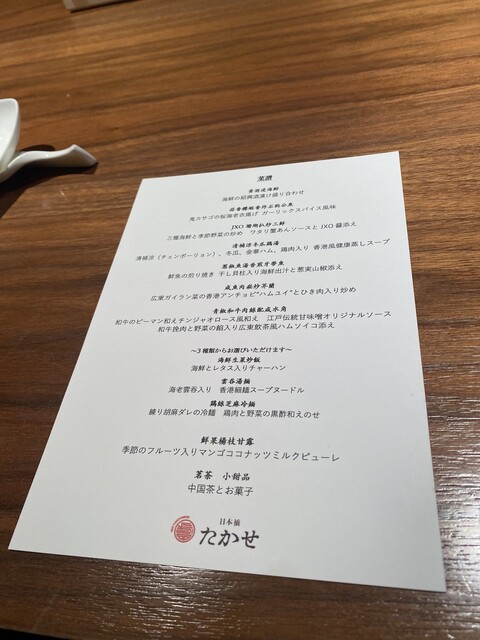 菜譜
黄酒浸海鮮
海鮮の紹興酒漬け盛り合わせ
鬼カサゴの桜海老衣揚げ ガーリックスパイス風味
JXO 珊瑚扒炒三鮮
三種海鮮と季節野菜の炒め ワタリ蟹あんソースと JXO 醤添え
清補涼冬瓜鶏湯
清補涼（チェンポーリョン）、冬瓜、金華ハム、鶏肉入り 香港風健康蒸しスープ
葱椒魚湯香煎牙帶魚
鮮魚の煎り焼き 干し貝柱入り海鮮出汁と葱実山椒添え
咸魚肉崧炒芥蘭
広東ガイラン菜の香港アンチョビ“ハムユイ”とひき肉入り炒め
青椒和牛肉絲配咸水角
和牛のピーマン和えチンジャオロース風和え 江戸伝統甘味噌オリジナルソース
和牛挽肉と野菜の餡入り広東飲茶風ハムソイコ添え
～3 種類からお選びいただけます～
海鮮生菜炒飯
海鮮とレタス入りチャーハン
雲呑湯麺
海老雲呑入り 香港細麺スープヌードル
鶏絲芝麻冷麺
練り胡麻ダレの冷麺 鶏肉と野菜の黒酢和えのせ
鮮果楊枝甘露
季節のフルーツ入りマンゴココナッツミルクピューレ
茗茶 小甜品
中国茶とお菓子
日本橋
たかせ